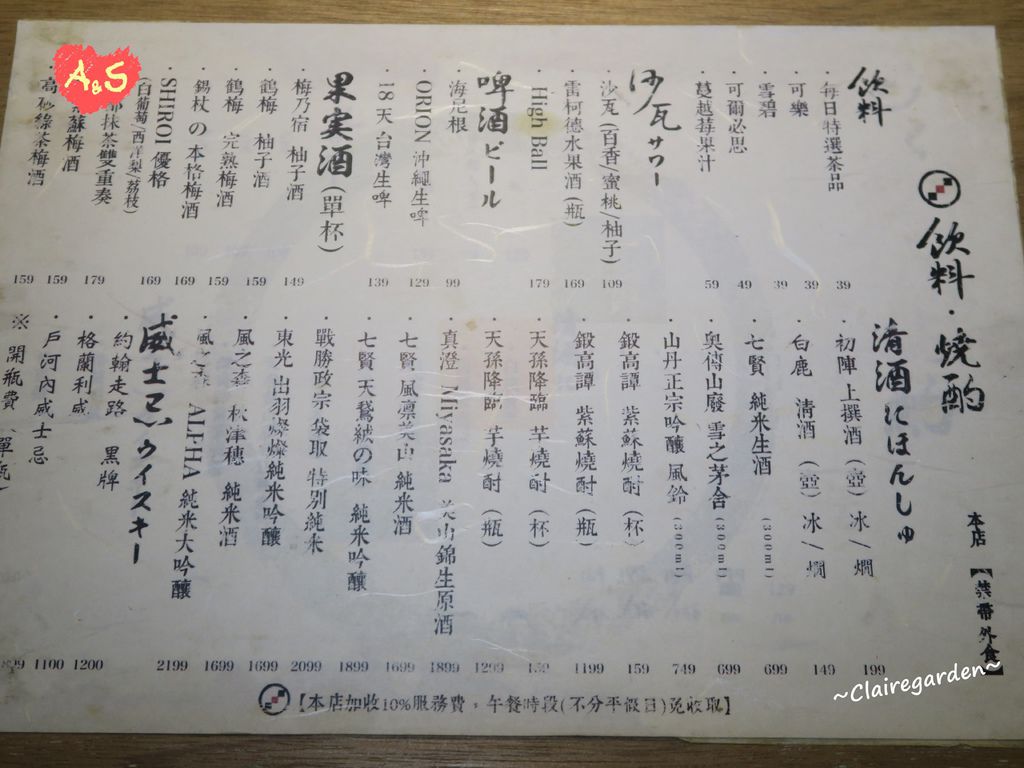 飲料・燒酌
本店【禁帶外食】
飲料
・每日特選茶品 39
・可樂 39
・雪碧 39
・可爾必思 49
・蔓越莓果汁 59
沙瓦サワー
・沙瓦(百香/蜜桃/柚子) 109
・雷柯德水果酒(瓶) 169
・High Ball 179
啤酒ビール
・海尼根 99
・ORION 沖繩生啤 129
・18天台灣生啤 139
果実酒(單杯)
・梅乃宿 柚子酒 149
・鶴梅 柚子酒 159
・鶴梅 完熟梅酒 159
・錫杖の本格梅酒 169
・SHIROI 優格 169
(白葡萄/西洋梨/荔枝)
抹茶雙重奏 179
蘇梅酒 159
高砂綠茶梅酒 159
清酒にほんしゅ
・初陣上撰酒(壺)冰/燗 199
・白鹿 清酒(壺)冰/燗 149
・七賢 純米生酒 (300ml) 699
・奧傳山廢 雪之茅舍 (300ml) 699
・山丹正宗吟釀 風鈴 (300ml) 749
・鍛高譚 紫蘇燒酎(杯) 159
・鍛高譚 紫蘇燒酎(瓶) 1199
・天孫降臨 芋燒酎(杯) 159
・天孫降臨 芋燒酎(瓶) 1299
・真澄 Miyasaka 美山錦生原酒 1899
・七賢 風凛美山 純米酒 1699
・七賢 天鵝絨の味 純米吟釀 1899
・戰勝政宗 袋取 特別純米 2099
・東光 出羽燦燦純米吟釀 1699
・風之森 秋津穗 純米酒 1699
・風之森 ALPHA 純米大吟釀 2199
威士忌ウイスキー
・約翰走路 黑牌 1200
・格蘭利威 1100
・戶河內威士忌
※開瓶費(單瓶)
【本店加收10%服務費，午餐時段(不分平假日)免收取】
A&S
~Clairegarden~